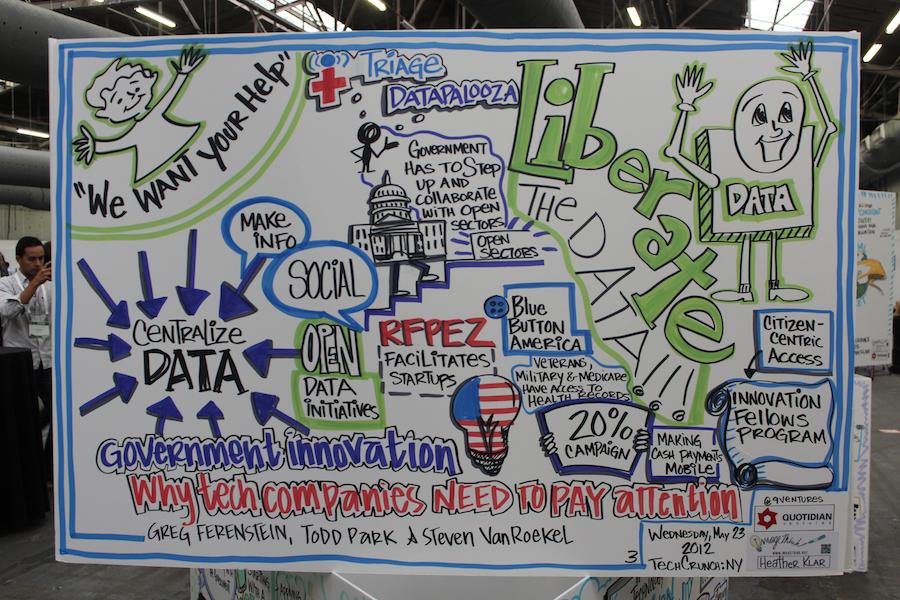 "We Want Your Help"
Triage
Datapalooza
Government
has to step
up and
collaborate
with open
sectors
Open
sectors
Liberate
The
Data!!!!
Data
Make
info
Social
Centralize
Data
Open
Data
initiatives
RFPEZ
Facilitates
startups
Blue
Button
America
Veterans,
Military & Medicare
have access to
health records
20%
Campaign
Making
cash payments
mobile
Citizen-
centric
access
Innovation
Fellows
Program
Government innovation
Why tech companies NEED TO PAY attention
Greg Ferenstein, Todd Park & Steven VanRoekel
3
Wednesday, May 23
2012
TechCrunch: NY
@qventures
QUOTIDIAN
VENTURES
ImageThink
www.imagethink.net
Heather Klar